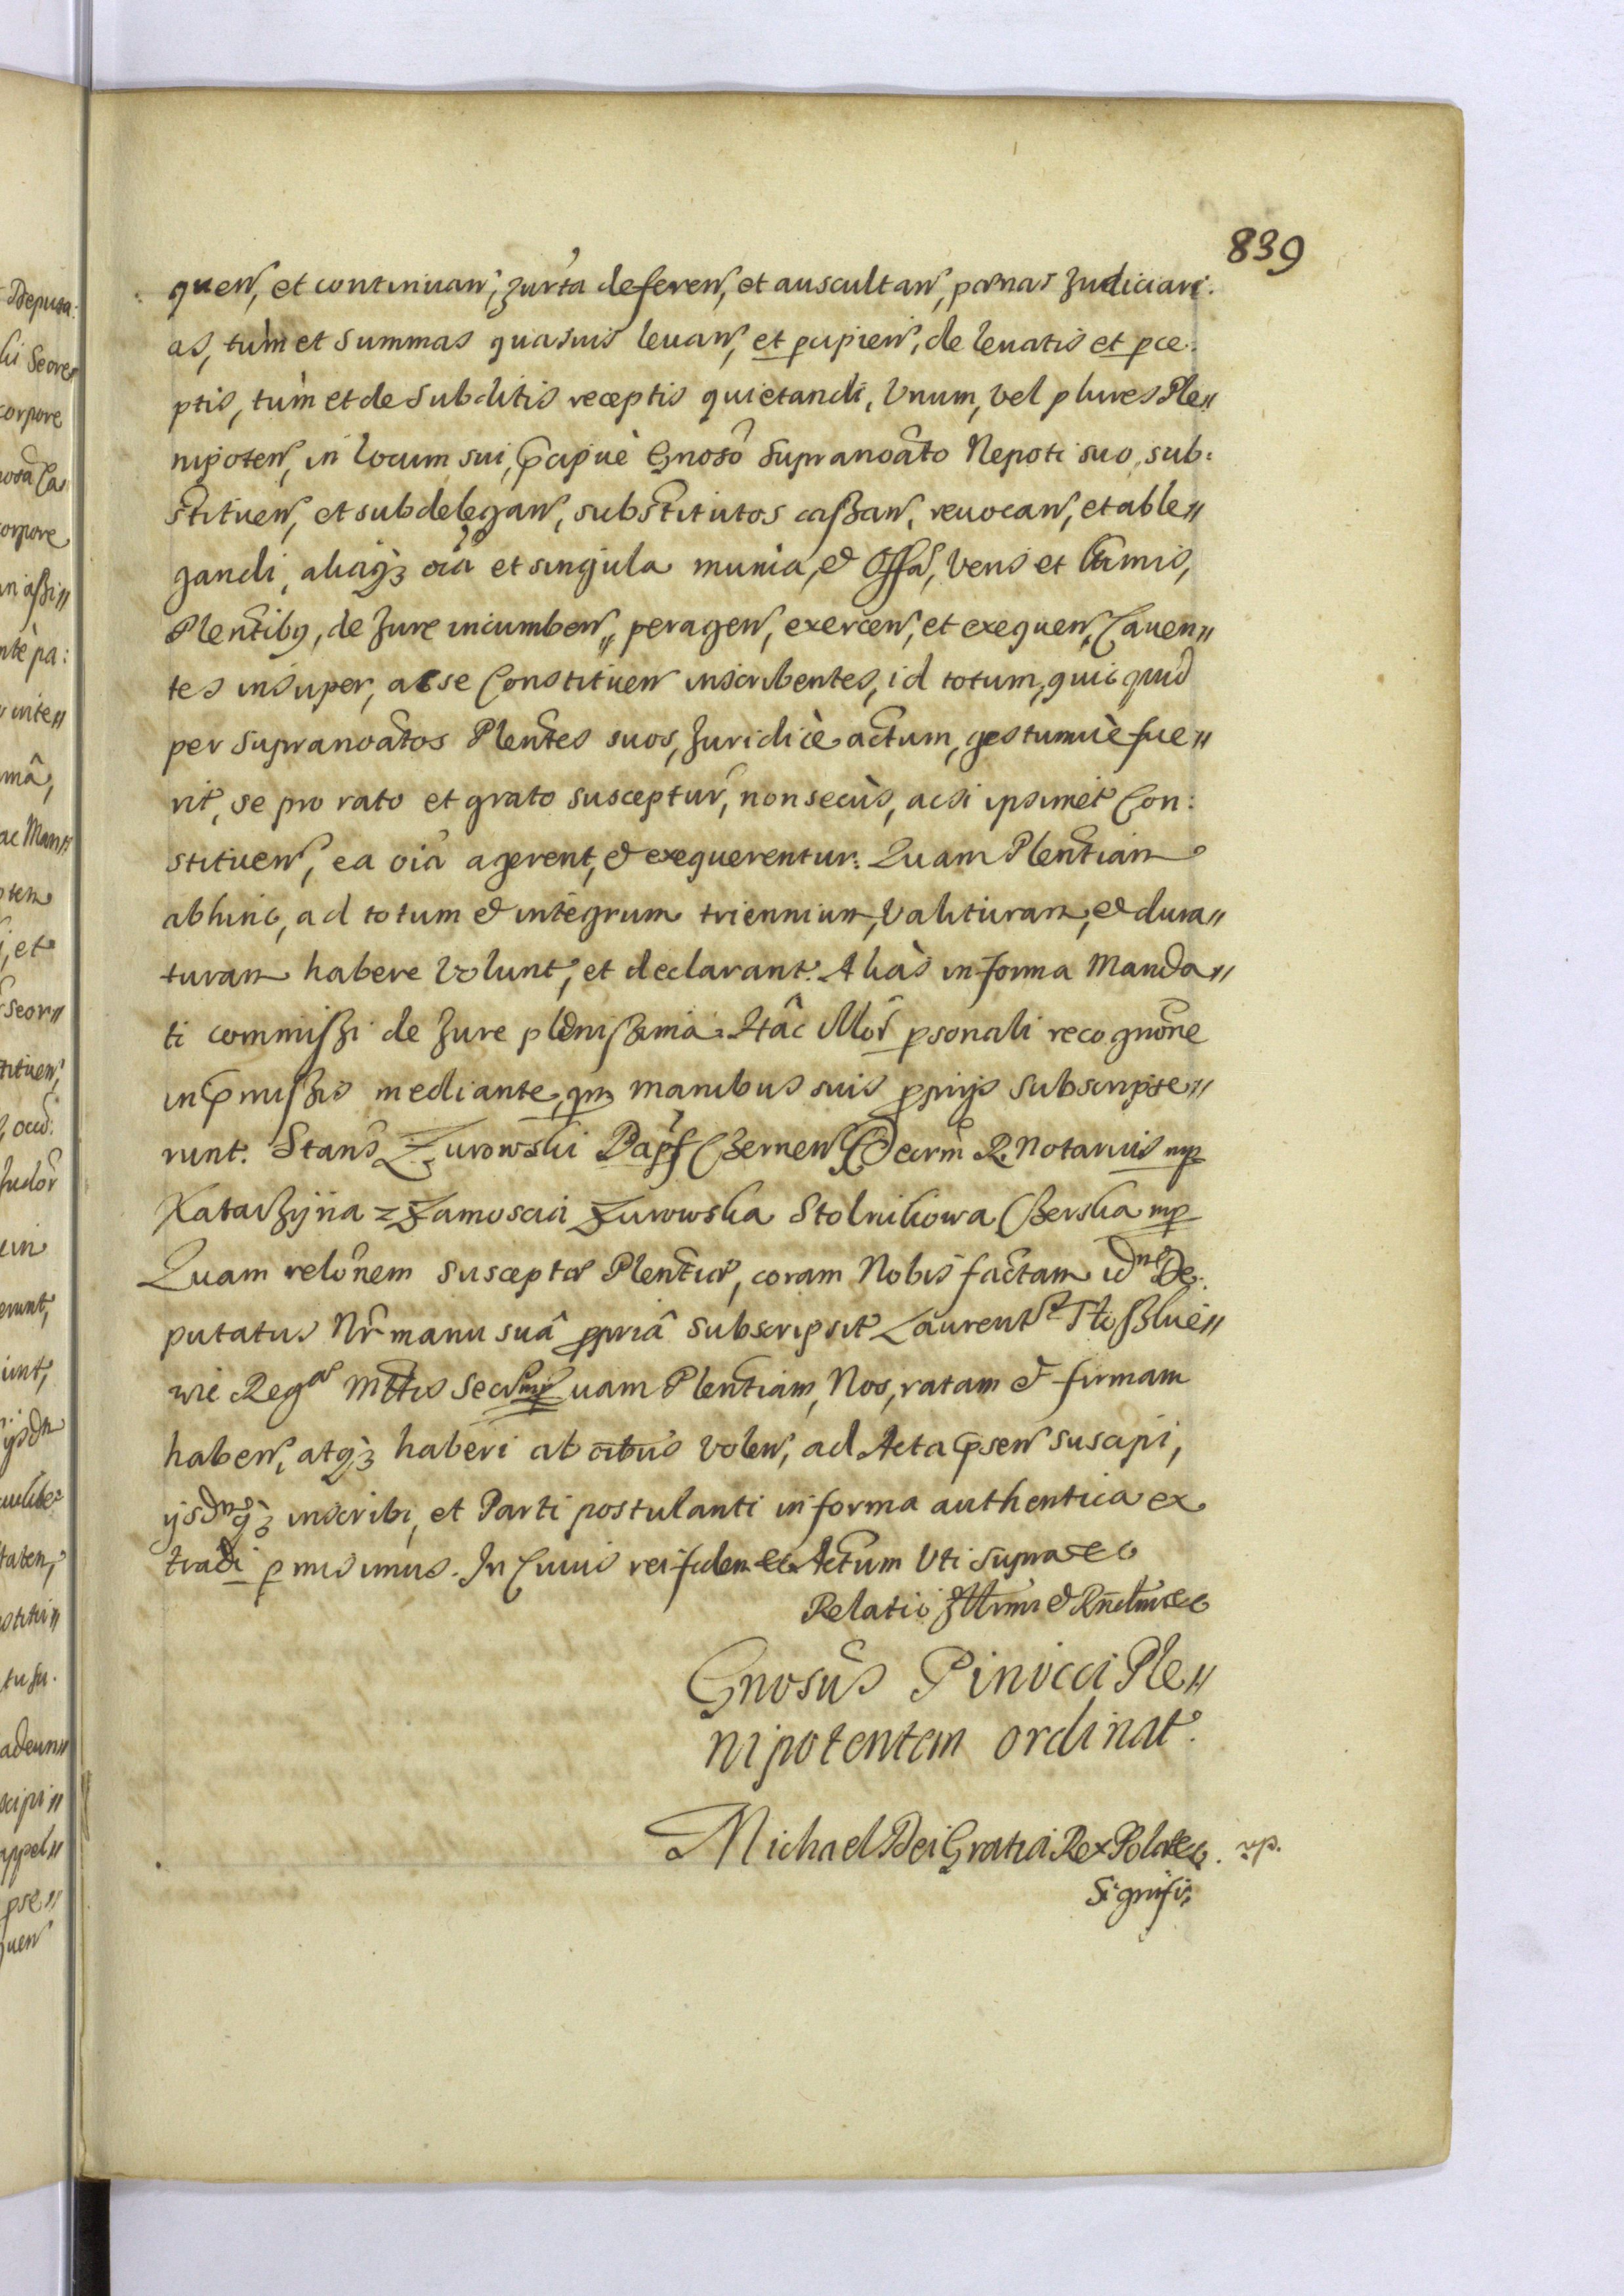 839
quen, et continuan, Jurta deferen, et auscultan, pœnas Judiciari:
as, tùm et summas quasuis leuan, et pcipien, de leuatis et pce:
ptis, tùm et de subditis receptis quietandi, Vnum, vel plures Ple〃
nipoten, in locum sui, pcipuè Gnoso supranoato Nepoti suo, sub:
stituen, et subdelegan, substitutos cassan, reuocan, et able〃
gandi, aliaqꝫ oia et singula munia, & Offa, veris et ltimis,
Plentibꝰ, de Jure incumben〃 peragen, exercen, et exequen, Cauen〃
tes insuper, ac se Constituen inscribentes, id totum, quicquid
per supranoatos Plentes suos, Juridicè actum, gestumuè fue〃
rit, se pro rato et grato susceptur, non secùs, acsi ipsimet Con:
stituen, ea oia agerent, & exequerentur. Quam Plentiam
abhinc, ad totum & integrum triennium, valituram, & dura〃
turam habere volunt, et declarant. Aliàs in forma Manda〃
ti commissi de Jure plenissima. Hâc Illor psonali recognone
in pmissis mediante, qm manibus suis pprijs subscripse〃
runt. Stans Żurowski Dapf Czernen Decrm R. Notarius mp
Katarzyna z Zamoscia Żurowska Stolnikowa Czerska mp
Quam relonem susceptæ Plentiæ, coram Nobis factam idne De:
putatus Nr manu suâ ppriâ subscripsit Laurent
wic Regæ Mttis Secr mp Quam Plentiam, Nos, ratam & firmam
haben, atqꝫ haberi ab oibus volen, ad Acta psen suscipi,
ijsdmqꝫ inscribi, et Parti postulanti in forma authentica ex
tradi pmisimus. In Cuius rei fidem etc Actum Vti supra etc
Relatio Illrmi & Rndmi etc
Gnosus Pinocci Ple〃
nipotentem ordinat.
Michael Dei Gratia Rex Polæ etc. rp.
Signifi: